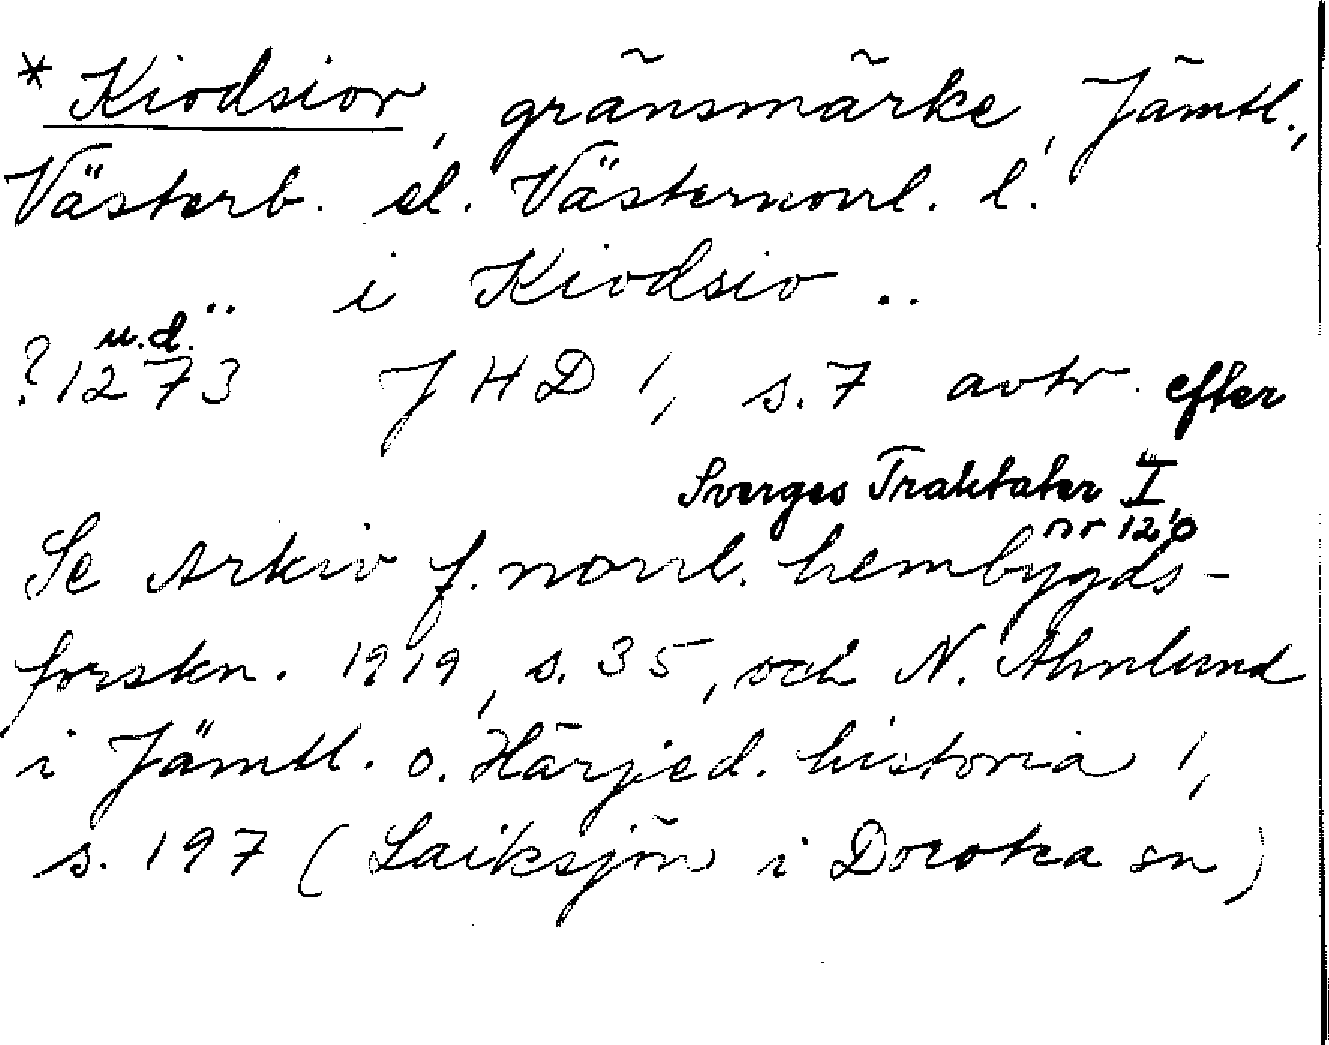 * Kiodsior, gränsmärke, Jämtl.,
Västerb. el. Västernorrl. l.
.. i Kiodsio ..
u.d.
?1273 JHD 1, s. 7 avtr. efter
Sverges Traktater I
nr 120
Se Arkiv f. norrl. hembygds-
forskn. 1919, s. 35, och N. Ahnlund
i Jämtl. o. Härjed. historia 1,
s. 197 (Laiksjön i Dorotea sn)